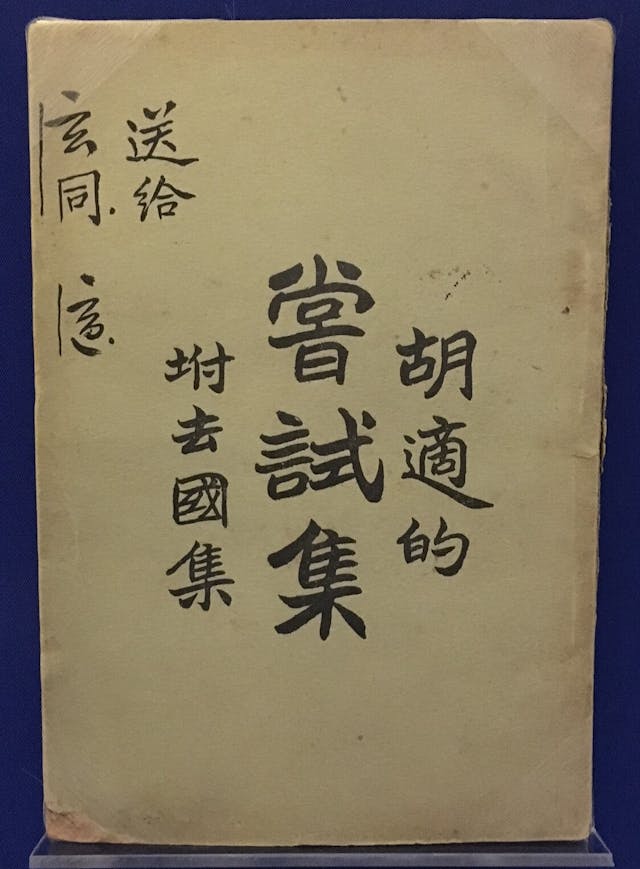 胡適的
嘗試集
坿去國集
送給
玄同.
適.